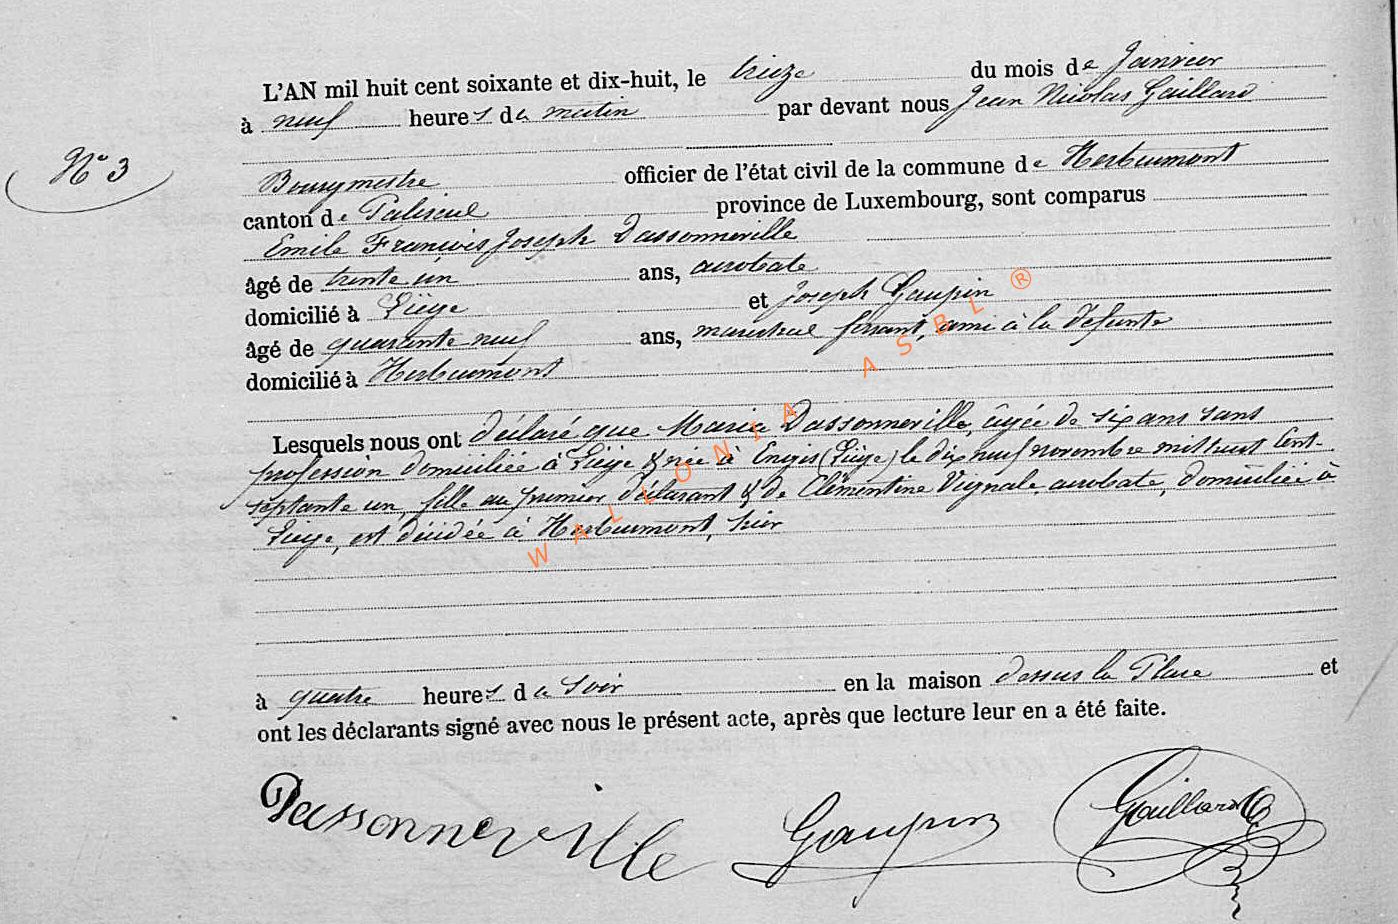 L'AN mil huit cent soixante et dix-huit, le treize du mois de Janvier
à neuf heures du matin par devant nous Jean Nicolas Gaillard
N° 3
Bourgmestre officier de l'état civil de la commune de Herbeumont
canton de Paliseul province de Luxembourg, sont comparus
Emile François Joseph Dassonneville
âgé de trente un ans, acrobate
domicilié à Liège et Joseph Gaupin
âgé de quarante neuf ans, maréchal ferrant, ami à la défunte
domicilié à Herbeumont
Lesquels nous ont déclaré que Maria Dassonneville, âgée de six ans sans
profession domiciliée à Liège & née à Engis (Liège) le dix neuf novembre mil huit cent
septante un, fille au premier déclarant & de Clémentine Vignale, acrobate, domiciliée à
Liège, est décédée à Herbeumont, hier
à quatre heures du soir en la maison dessus la Place et
ont les déclarants signé avec nous le présent acte, après que lecture leur en a été faite.
Dassonneville Gaupin Gaillard
WALLONIA ASBL ®